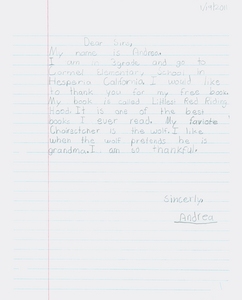 Dear Sirs,
My name is Andrea.
I am in 3grade and go to
Carmel Elementary School in
Hesperia California. I would like
to thank you for my free book.
My book is called Little Red Riding
Hood. It is one of the best
books I ever read. My favorite
is the wolf. I like
when the wolf pretends he is
grandma. I am so thankful.
Sincerly,
Andrea